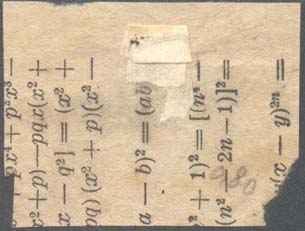 px⁴ + p²x³ −
x² + p)—pqx(x² +
x − q²] = (x² +
pq) (x² + p)(x² −
a − b)² = (ab
² + 1)² = [(n⁴ −
(n² − 2n − 1)]² =
(x − y)²ⁿ =
980